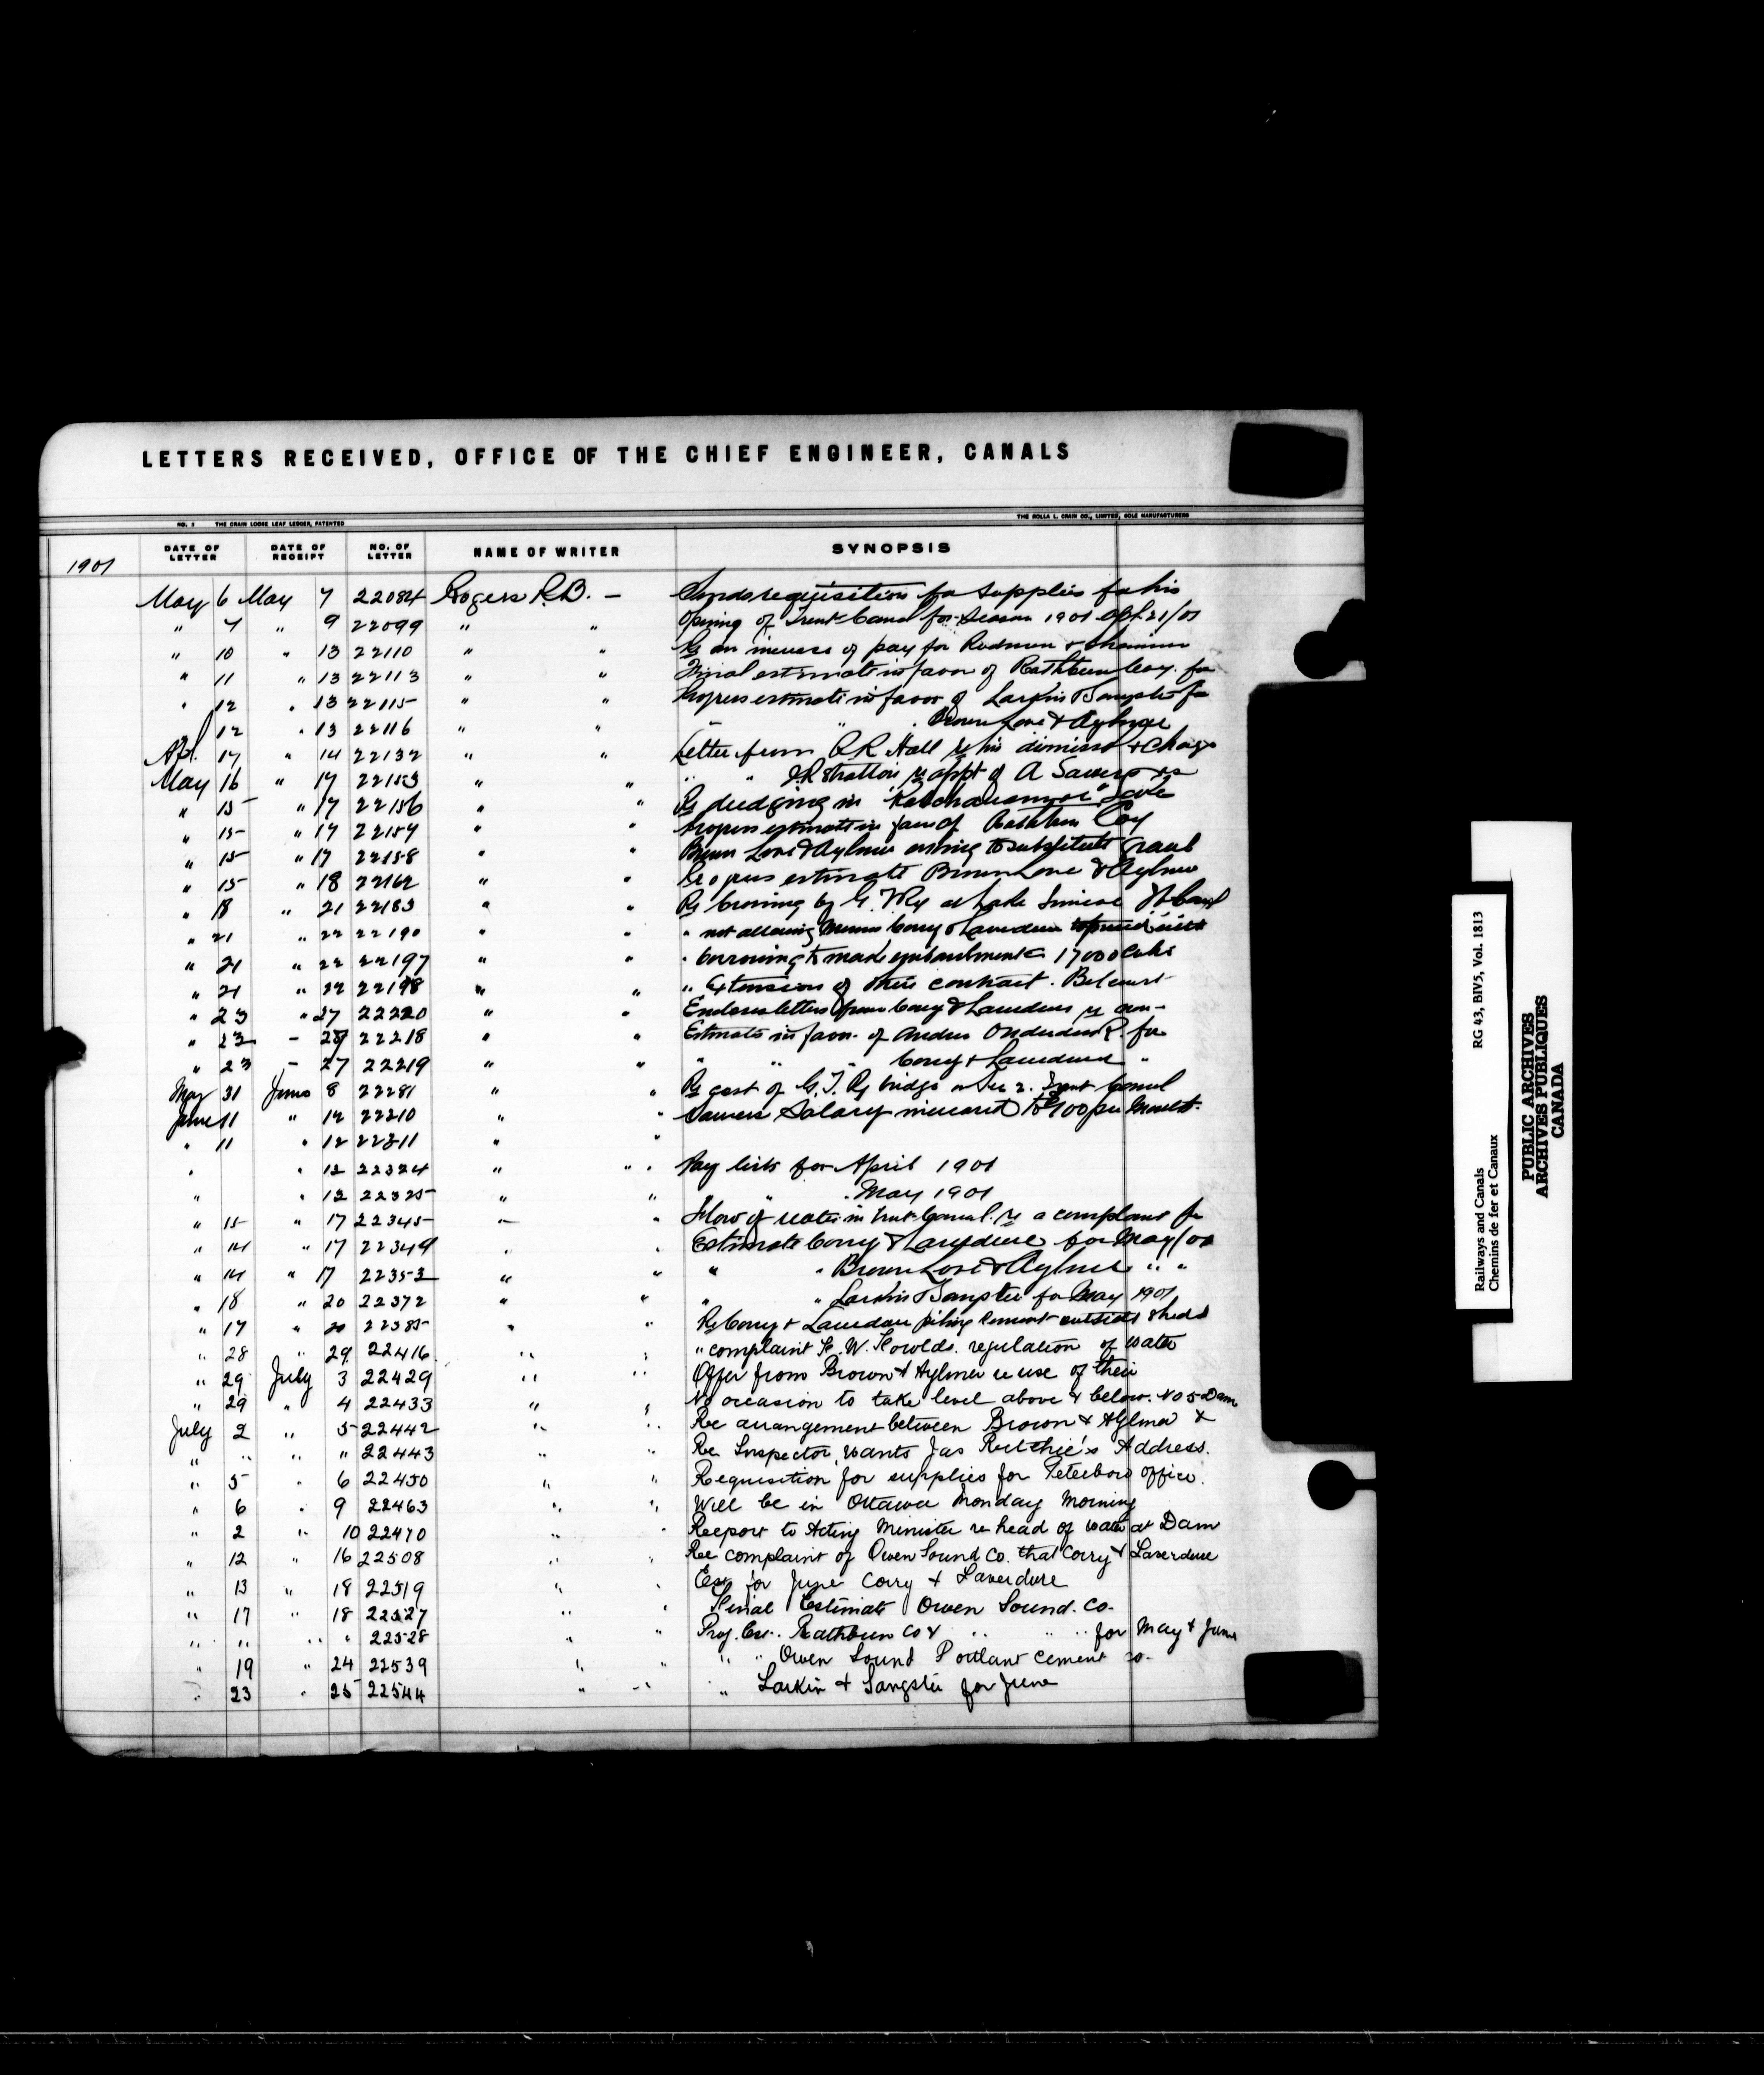 LETTERS RECEIVED, OFFICE OF THE CHIEF ENGINEER, CANALS
NO. 3 THE CRAIN LOOSE LEAF LEDGER, PATENTED THE ROLLA L. CRAIN CO., LIMITED, SOLE MANUFACTURERS
1901 DATE OF LETTER DATE OF RECEIPT NO. OF LETTER NAME OF WRITER SYNOPSIS
May 6 May 7 22084 Rogers R.B. — Sends requisition for supplies for his
" 7 " 9 22099 " " Opening of Trent Canal for season 1901 Apl 21/01
" 10 " 13 22110 " " Re an increase of pay for Rodman & chainman
" 11 " 13 22113 " " Final estimate in favor of Rathbun Coy. for
" 12 " 13 22115 " " Progress estimate in favor of Larkin & Sangster for
" 12 " 13 22116 " " " " " Brown Love & Aylmer
Apl. 17 " 14 22132 " " Letter from R.R. Hall re his dismissal &
May 16 " 17 22153 " " " " J.R. Stratton re appt of A Sawers as
" 15 " 17 22156 " " Re dredging in "Katchawannoe" Lake
" 15 " 17 22157 " " Progress estimate in favor of Rathbun Coy
" 15 " 17 22158 " " Brown Love & Aylmer asking to substitute
" 15 " 18 22162 " " Progress estimate Brown Love & Aylmer
" 18 " 21 22183 " " Re crossing by G.T.Ry at Lake Simcoe
" 21 " 22 22190 " " " not allowing Messrs Corry & Laverdure
" 21 " 22 22197 " " " borrowing to make embankment 17000 Cubic
" 21 " 22 22198 " " " Extension of their contract. Belcourt
" 23 " 27 22220 " " Encloses letters from Corry & Laverdure re
" 23 – 28 22218 " " Estimate in favor of Andrew Onderdonk for
" 23 – 27 22219 " " " " " Corry & Laverdure "
May 31 June 8 22281 " " Re cost of G.T.Ry bridge on Sec 2. Trent Canal
June 11 " 12 22210 " " Sawers Salary increased to $100 per month.
" 11 " 12 22311 " "
" " 12 22324 " " Pay lists for April 1901
" " 12 22325 " " " " May 1901
" 15 " 17 22345 – " Flow of water in Trent Canal. re a complaint
" 14 " 17 22349 " " Estimate Corry & Laverdure for May/01
" 14 " 17 22353 " " " " Brown Love & Aylmer " "
" 18 " 20 22372 " " " " Larkin & Sangster for May 1901
" 17 " 20 22385 " " Re Corry & Laverdure piling cement outside sheds
" 28 " 29 22416 " " " complaint regulation of water
" 29 July 3 22429 " " Offer from Brown & Aylmer re use of their
" 29 " 4 22433 " " No occasion to take level above & below. No 5 Dam
July 2 " 5 22442 " " Re arrangement between Brown & Aylmer &
" " " " 22443 " " Re Inspector, wants Jas Ritchie's Address.
" 5 " 6 22450 " " Requisition for supplies for Peterboro office.
" 6 " 9 22463 " " Will be in Ottawa Monday Morning
" 2 " 10 22470 " " Report to Acting Minister re head of water at Dam
" 12 " 16 22508 " " Re complaint of Owen Sound Co. that Corry & Laverdure
" 13 " 18 22519 " " Est for June Corry & Laverdure
" 17 " 18 22527 " " Final Estimate Owen Sound. Co.
" " " " 22528 " " Prog. Est. Rathbun Co & " " " for May & June
" 19 " 24 22539 " " " " Owen Sound Portland Cement Co.
" 23 " 25 22544 " " " Larkin & Sangster for June
Railways and Canals RG 43, BIV5, Vol. 1813
Chemins de fer et Canaux
PUBLIC ARCHIVES
ARCHIVES PUBLIQUES
CANADA